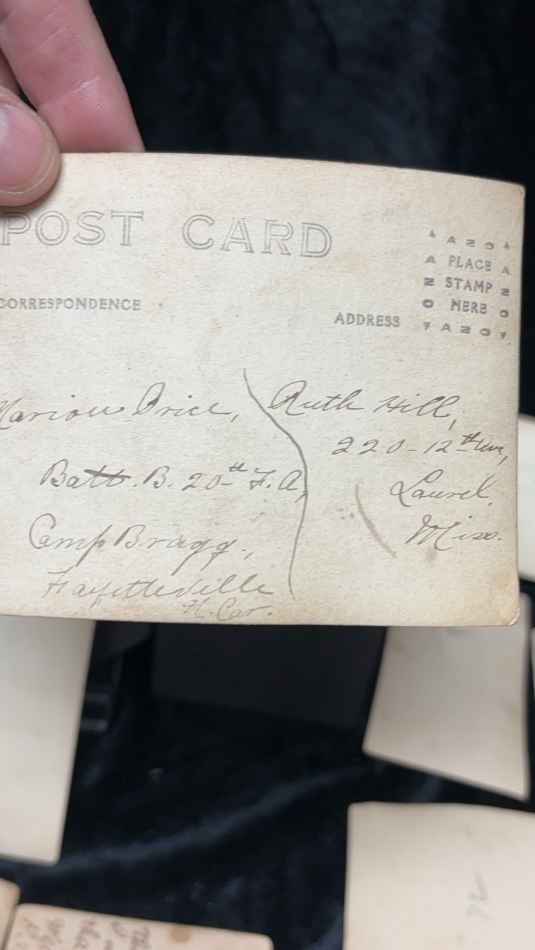 POST CARD
AZO
PLACE
STAMP
HERE
AZO
CORRESPONDENCE
ADDRESS
Marion Price,
Batt. B. 20th F.A,
Camp Bragg,
Fayetteville
N. Car.
Ruth Hill,
220-12th Ave,
Laurel.
Miss.